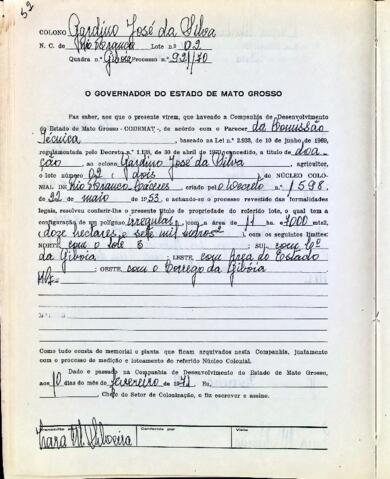 52
COLONO Gardino José da Silva
N. C. de Rio Branco Lote n.º 02
Quadra n.º Giboia Processo n.º 921/70
O GOVERNADOR DO ESTADO DE MATO GROSSO
Faz saber, aos que o presente virem, que havendo a Companhia de Desenvolvimento
do Estado de Mato Grosso - CODEMAT -, de acordo com o Parecer da Comissão
Técnica, baseado na Lei n.º 2.933, de 10 de junho de 1969,
regulamentada pelo Decreto n.º 1.138, de 30 de abril de 1970, concedido, a título de doa-
ção ao colono Gardino José da Silva agricultor,
o lote número 02 ( dois ) do NÚCLEO COLO-
NIAL DE Rio Branco-Cáceres criado pelo Decreto n.º 1598,
de 22 de maio de 1953. e achando-se o processo revestido das formalidades
legais, resolveu conferir-lhe o presente título de propriedade do referido lote, o qual tem a
configuração de um polígono irregular, com a área de ha. e 7000 mts2,
(doze hectares e sete mil metros² ), com os seguintes limites:
NORTE, com o lote ; SUL com
da Giboia ; LESTE, com Área do Estado
; OESTE, com o Corrego da Gibóia
Como tudo consta do memorial e planta que ficam arquivados nesta Companhia, juntamente
com o processo de medição e loteamento do referido Núcleo Colonial.
Dado e passado na Companhia de Desenvolvimento do Estado de Mato Grosso,
aos 10 dias do mês de fevereiro de 1971. Eu,
Chefe do Setor de Colonização, o fiz escrever e assino.
Transcrito por Conferido por Visto
Zara M. Silveira